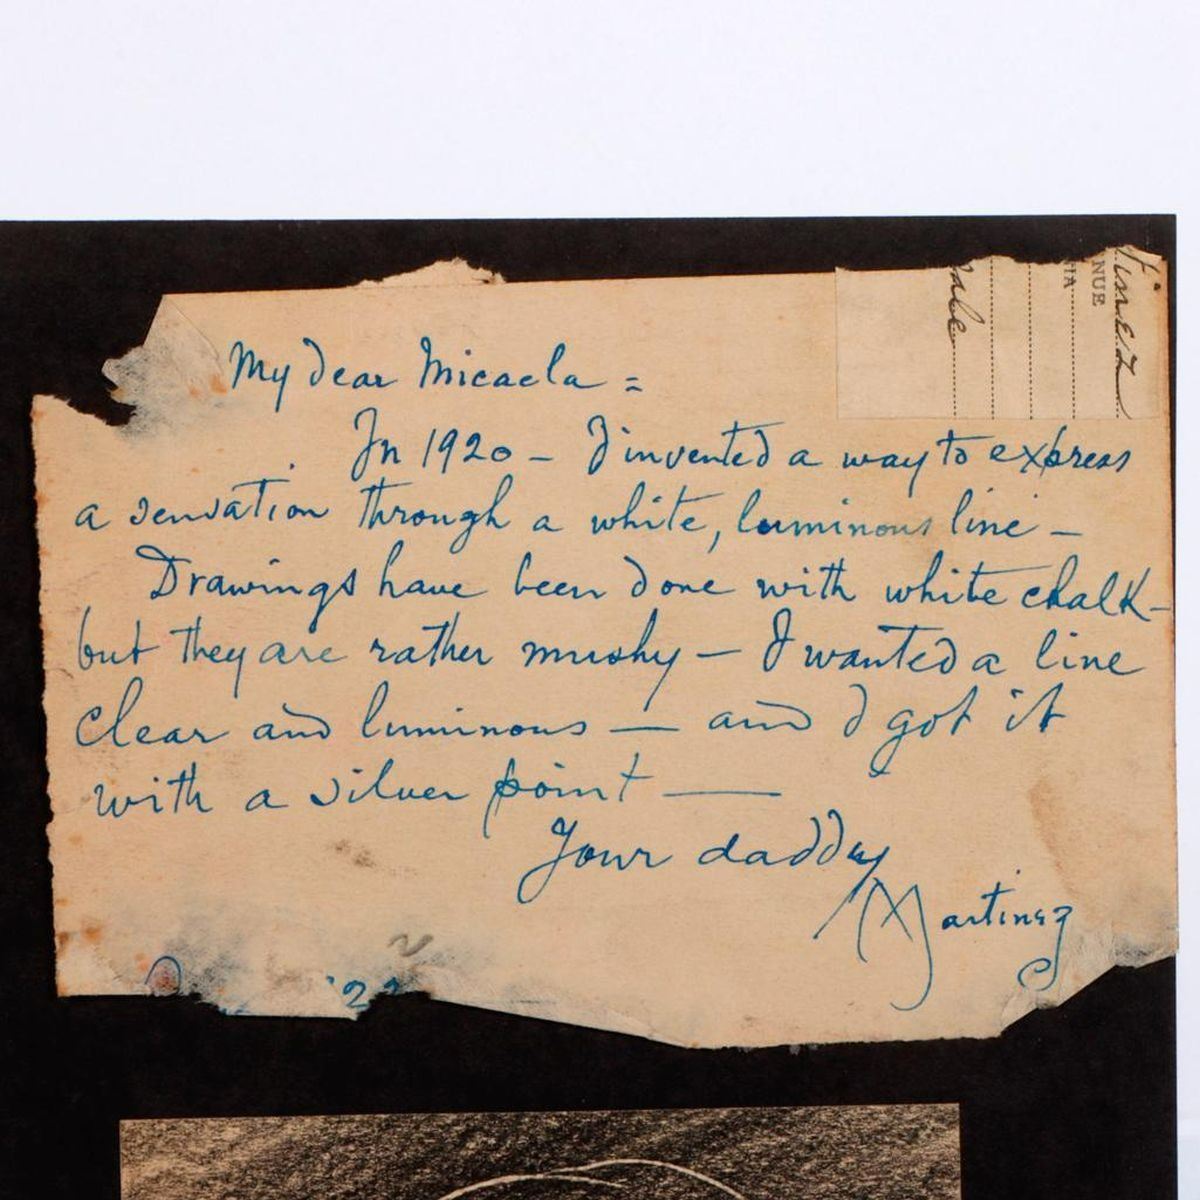 My dear Micaela =
In 1920 – I invented a way to express
a sensation through a white, luminous line –
Drawings have been done with white chalk –
but they are rather mushy – I wanted a line
clear and luminous — and I got it
with a silver point ——
Your daddy
Martinez
'22
tinez
NUE
NIA
dale